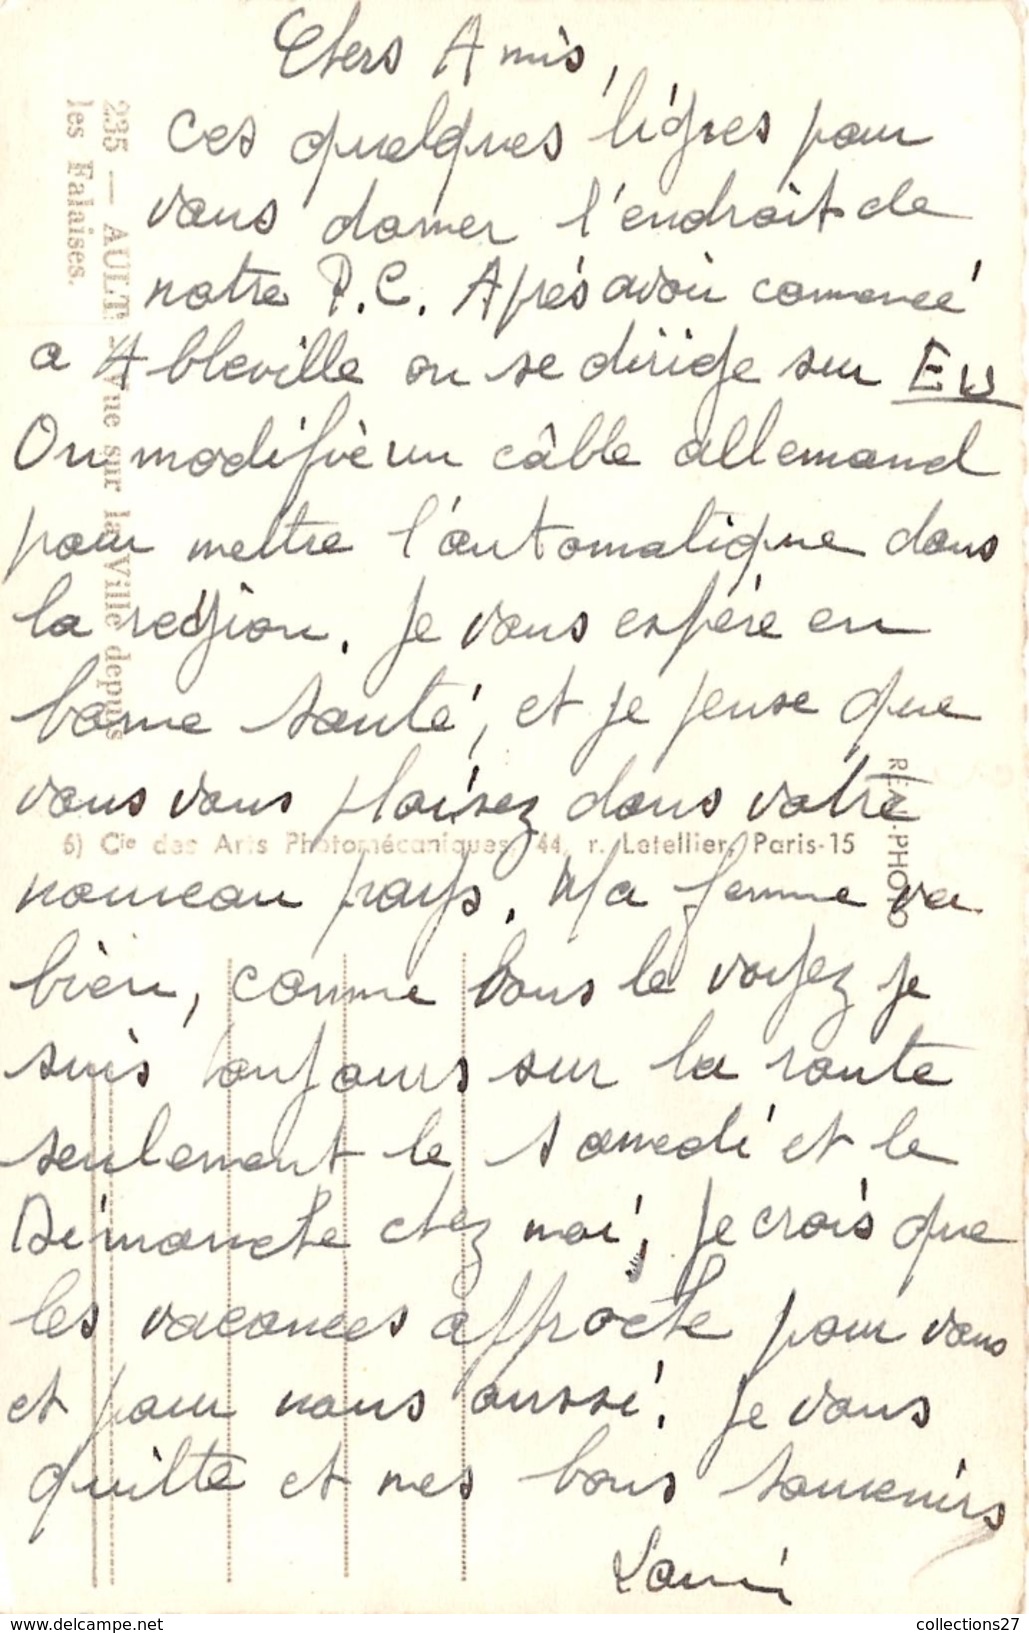 Chers Amis,
Ces quelques lignes pour
vous donner l'endroit de
notre P.C. Après avoir commencé
a Abbeville on se dirige sur EU
On modifie un câble allemand
pour mettre l'automatique dans
la région. Je vous espère en
bonne santé, et je pense que
vous vous plaisez dans votre
nouveau pays. Ma femme va
bien, comme vous le voyez je
suis toujours sur la route
seulement le samedi et le
Dimanche chez moi, Je crois que
les vacances approche pour vous
et pour nous aussi. Je vous
quitte et mes bons souvenirs
235 — AULT - Vue sur la Ville depuis
les Falaises.
6) Cie des Arts Photomécaniques, 44, r. Letellier, Paris-15
REAL-PHOTO
collections27